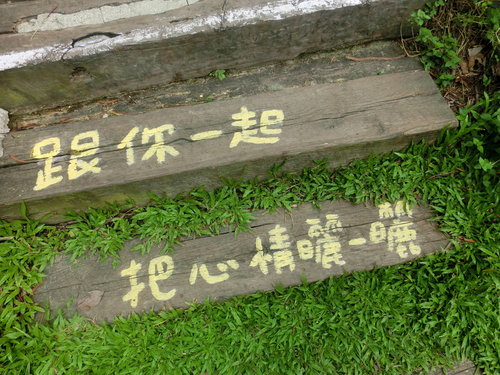 跟你一起
把心情曬一曬